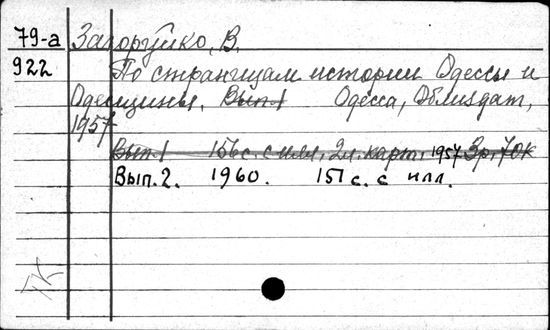 79-а Загоруйко, В.
922 По страницам истории Одессы и
Одесщины. Вып 1 Одесса, Облиздат,
1957
Вып. 1 156 с. с илл., 2 л. карт. 1957 3р. 70к
Вып. 2. 1960. 151 с. с илл.